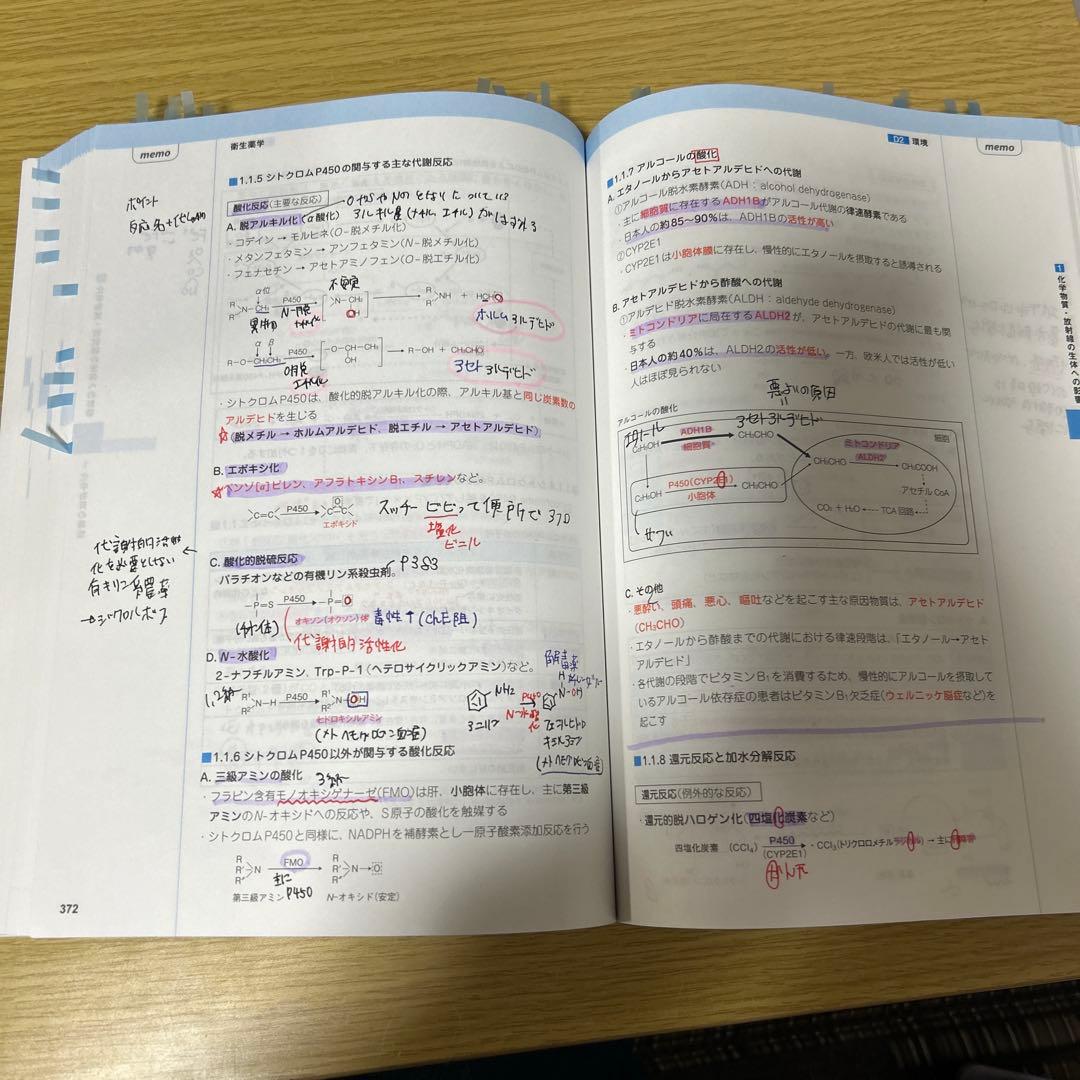 memo
衛生薬学
■1.1.5 シトクロムP450の関与する主な代謝反応
酸化反応(主要な反応)
A. 脱アルキル化(α酸化)
・コデイン → モルヒネ(O-脱メチル化)
・メタンフェタミン → アンフェタミン(N-脱メチル化)
・フェナセチン → アセトアミノフェン(O-脱エチル化)
ポイント
不安定
α位
P450
NH + HCHO
ホルムアルデヒド
α β
P450
R-O-CH₂CH₃
R-OH + CH₃CHO
アセトアルデヒド
・シトクロムP450は、酸化的脱アルキル化の際、アルキル基と同じ炭素数の
アルデヒドを生じる
(脱メチル → ホルムアルデヒド、脱エチル → アセトアルデヒド)
B. エポキシ化
ベンゾ[α]ピレン、アフラトキシンB₁、スチレンなど。
P450
エポキシド
塩化
ビニル
C. 酸化的脱硫反応
P383
パラチオンなどの有機リン系殺虫剤。
-P=S
P450
-P=O
オキソン(オクソン)体
毒性↑(ChE阻)
代謝的活性化
代謝的活性
化を必要としない
→ジクロルボス
D. N-水酸化
2-ナフチルアミン、Trp-P-1(ヘテロサイクリックアミン)など。
P450
ヒドロキシルアミン
(メトヘモグロビン血症)
NH2
P450
N-水酸化
アニリン
(メトヘモグロビン血症)
■1.1.6 シトクロムP450以外が関与する酸化反応
A. 三級アミンの酸化
・フラビン含有モノオキシゲナーゼ(FMO)は肝、小胞体に存在し、主に第三級
アミンのN-オキシドへの反応や、S原子の酸化を触媒する
・シトクロムP450と同様に、NADPHを補酵素とし一原子酸素添加反応を行う
FMO
主に
P450
第三級アミン
N-オキシド(安定)
372
D2 環境
memo
■1.1.7 アルコールの酸化
A. エタノールからアセトアルデヒドへの代謝
①アルコール脱水素酵素(ADH:alcohol dehydrogenase)
・主に細胞質に存在するADH1Bがアルコール代謝の律速酵素である
・日本人の約85〜90%は、ADH1Bの活性が高い
②CYP2E1
・CYP2E1は小胞体膜に存在し、慢性的にエタノールを摂取すると誘導される
B. アセトアルデヒドから酢酸への代謝
①アルデヒド脱水素酵素(ALDH:aldehyde dehydrogenase)
・ミトコンドリアに局在するALDH2が、アセトアルデヒドの代謝に最も関
与する
・日本人の約40%は、ALDH2の活性が低い。一方、欧米人では活性が低い
人はほぼ見られない
悪よいの原因
アルコールの酸化
エタノール
アセトアルデヒド
細胞
C₂H₅OH
ADH1B
細胞質
CH₃CHO
ミトコンドリア
ALDH2
CH₃CHO
CH₃COOH
C₂H₅OH
P450(CYP2E1)
小胞体
CH₃CHO
アセチルCoA
CO₂ + H₂O
TCA回路
C. その他
・悪酔い、頭痛、悪心、嘔吐などを起こす主な原因物質は、アセトアルデヒド
(CH₃CHO)
・エタノールから酢酸までの代謝における律速段階は、「エタノール→アセト
アルデヒド」
・各代謝の段階でビタミンB₁を消費するため、慢性的にアルコールを摂取して
いるアルコール依存症の患者はビタミンB₁欠乏症(ウェルニッケ脳症など)を
起こす
■1.1.8 還元反応と加水分解反応
還元反応(例外的な反応)
・還元的脱ハロゲン化(四塩化炭素など)
四塩化炭素 (CCl₄)
P450
(CYP2E1)
・CCl₃(トリクロロメチルラジカル)→主に
1
化学物質・放射線の生体への影響